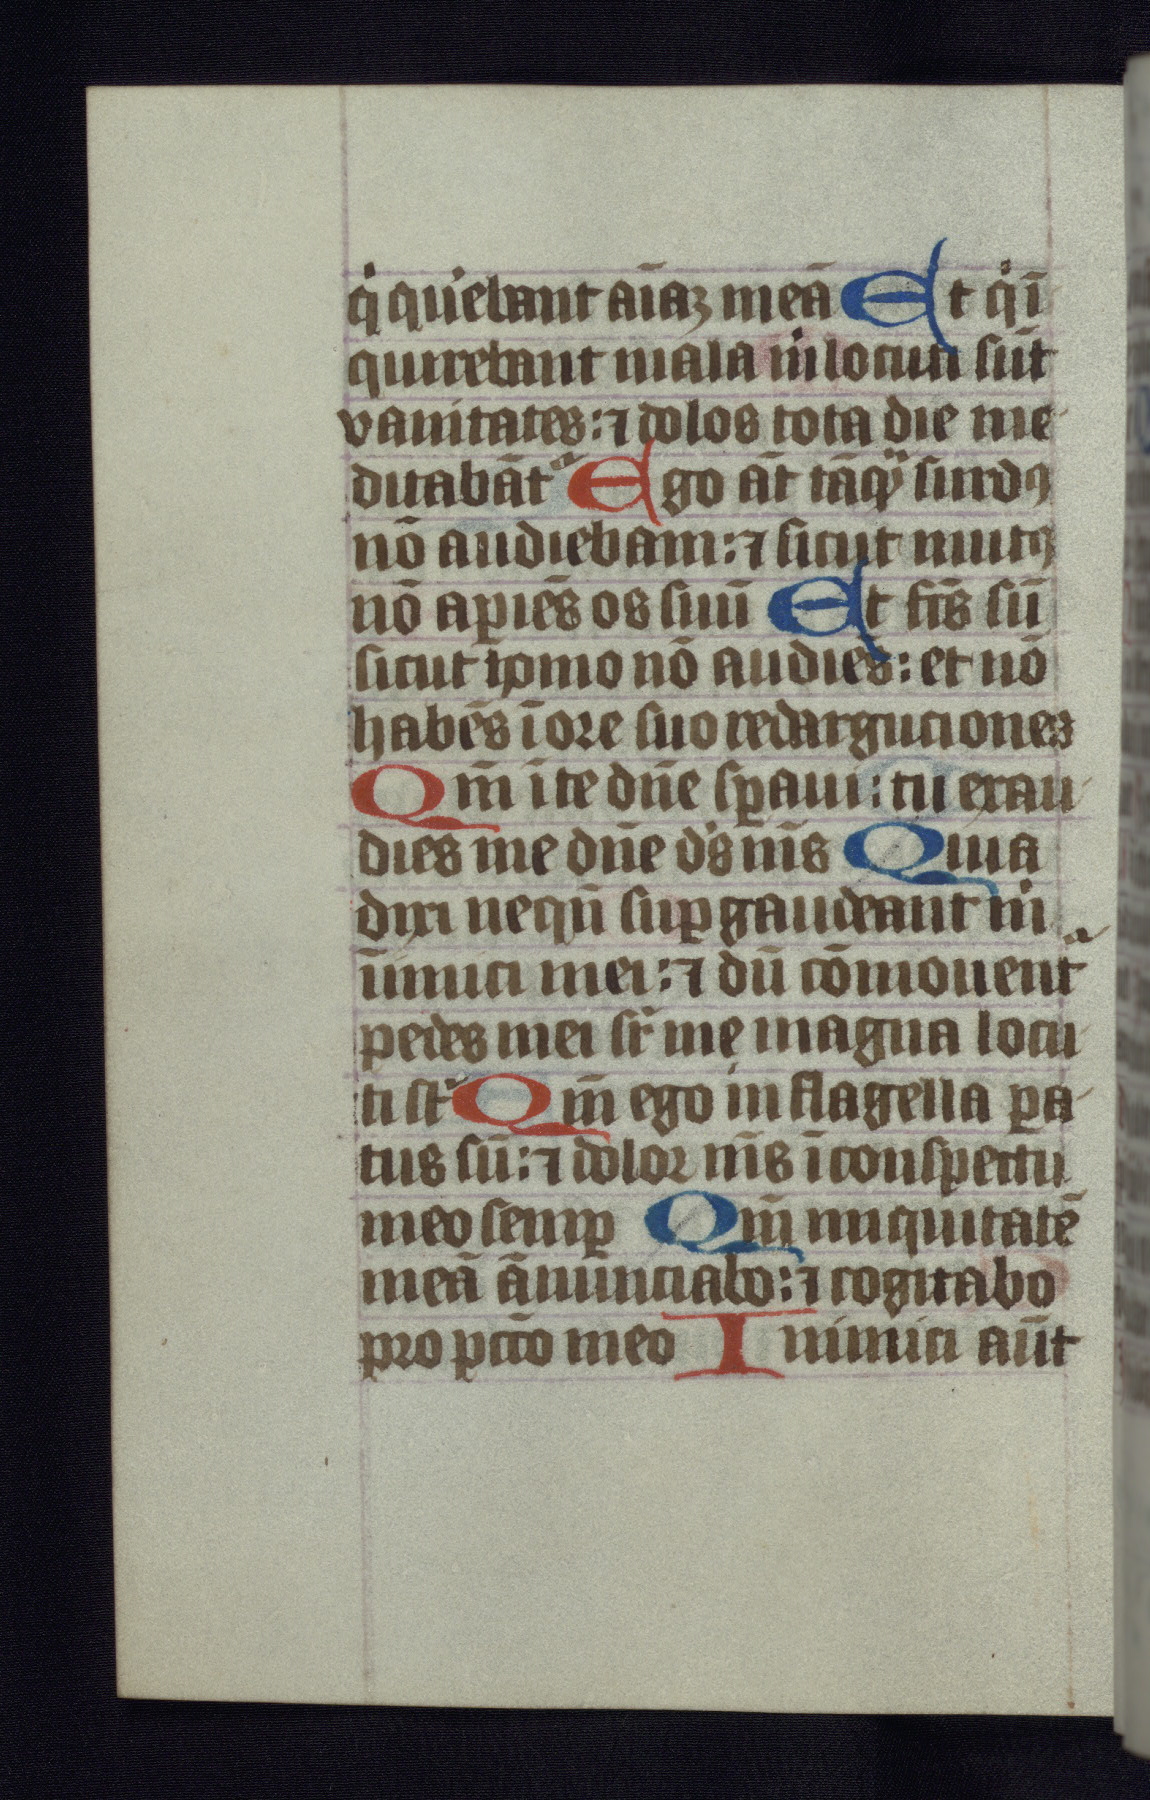 qͥ qu̾ebant aīaꝫ meā Et qͥ ī
quirebant mala m̍ locuti sūt
vanitates: ⁊ dolos tota die me-
ditabātᵃ Ego āt tāqᷓ surdꝯ
nō audiebam: ⁊ sicut mutꝯ
nō apiēs os suū Et fc̄s sū
sicut homo nō audiēs: et nō
habēs ī ore suo redarguciones
Qm̄ ī te dn̄e sꝑaui: tu exau-
dies me dn̄e ds̄ m̄s Quia
dixi neqn̄ suꝑgaudeant m̍
inimici mei: ⁊ dū cōmouentᵃ
pedes mei sr̄ me magna locu-
ti st̄ Qm̄ ego in flagella ꝑa-
tus sū: ⁊ dolor m̄s ī conspectu
meo semꝑ Qm̄ iniquitatē
meā ānunciabo: ⁊ cogitabo
pro pctō meo Inimici aūt